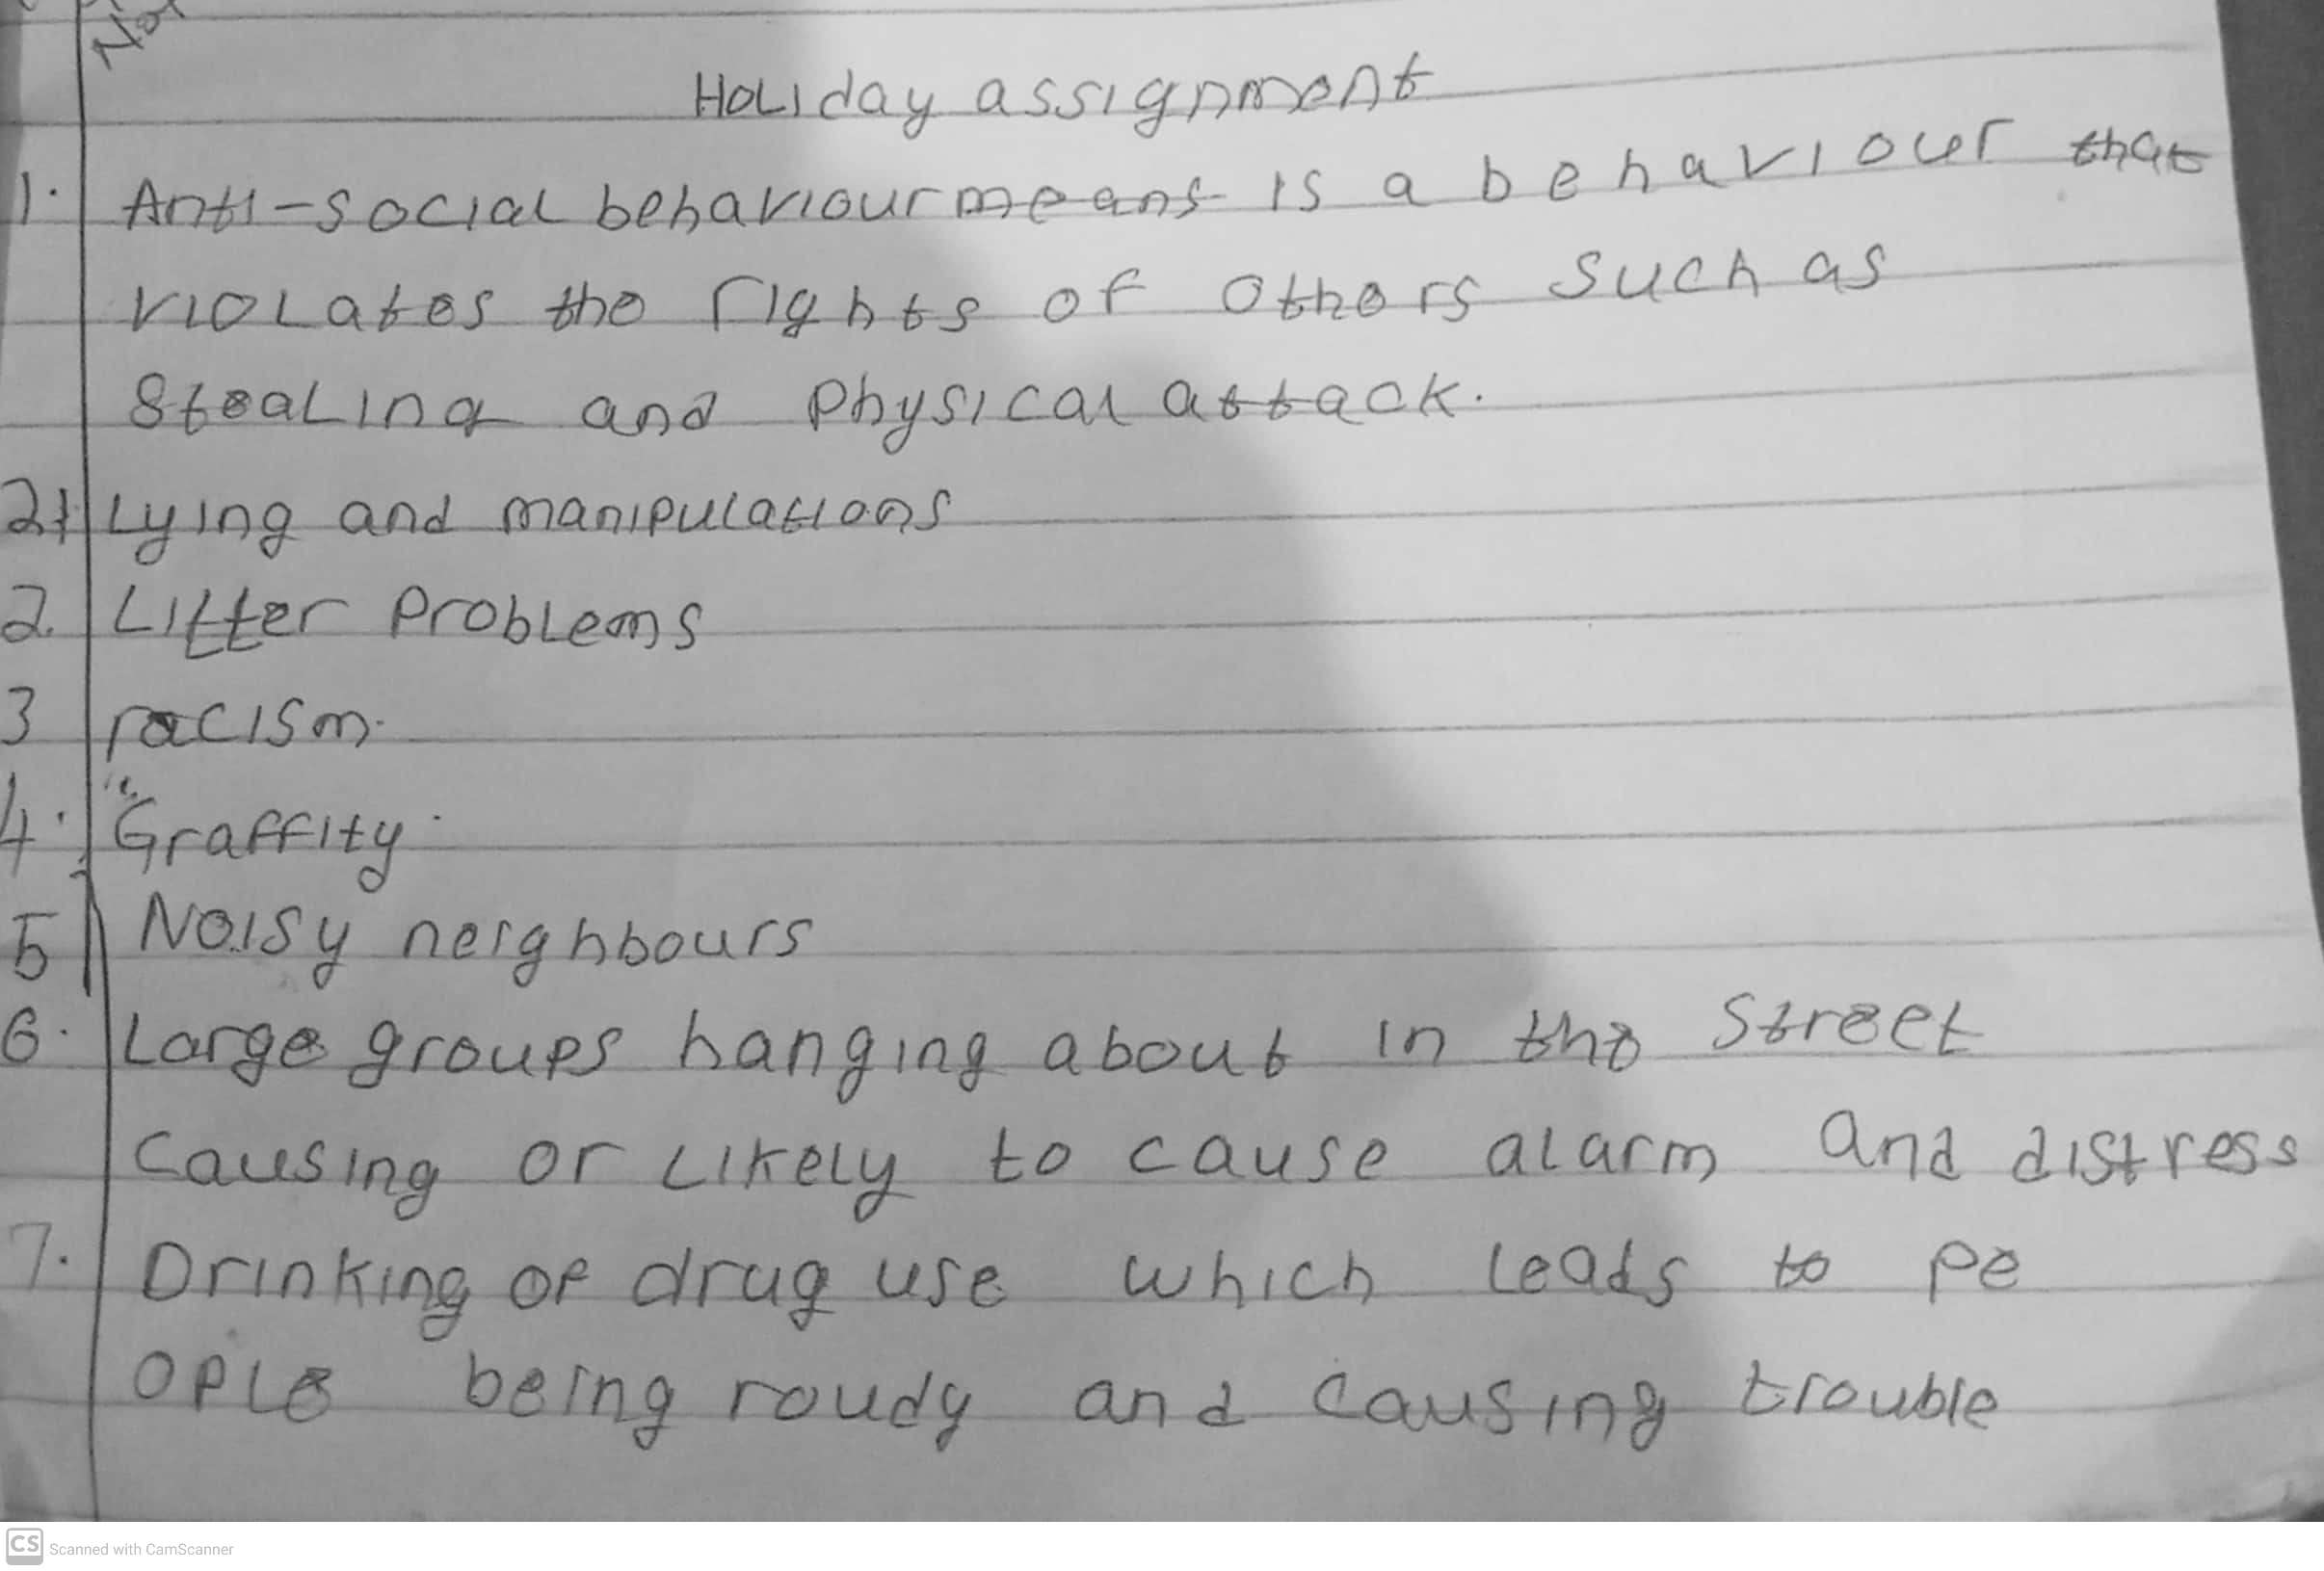 Holiday assignment
1. Anti-social behaviour means is a behaviour that
violates the rights of others such as
Stealing and physical attack.
21 Lying and manipulations
2. Litter problems
3 racism.
4. Graffity.
5 Noisy neighbours
6. Large groups hanging about in the Street
Causing or likely to cause alarm and distress
7. Drinking of drug use which leads to pe
ople being roudy and causing trouble
CS Scanned with CamScanner